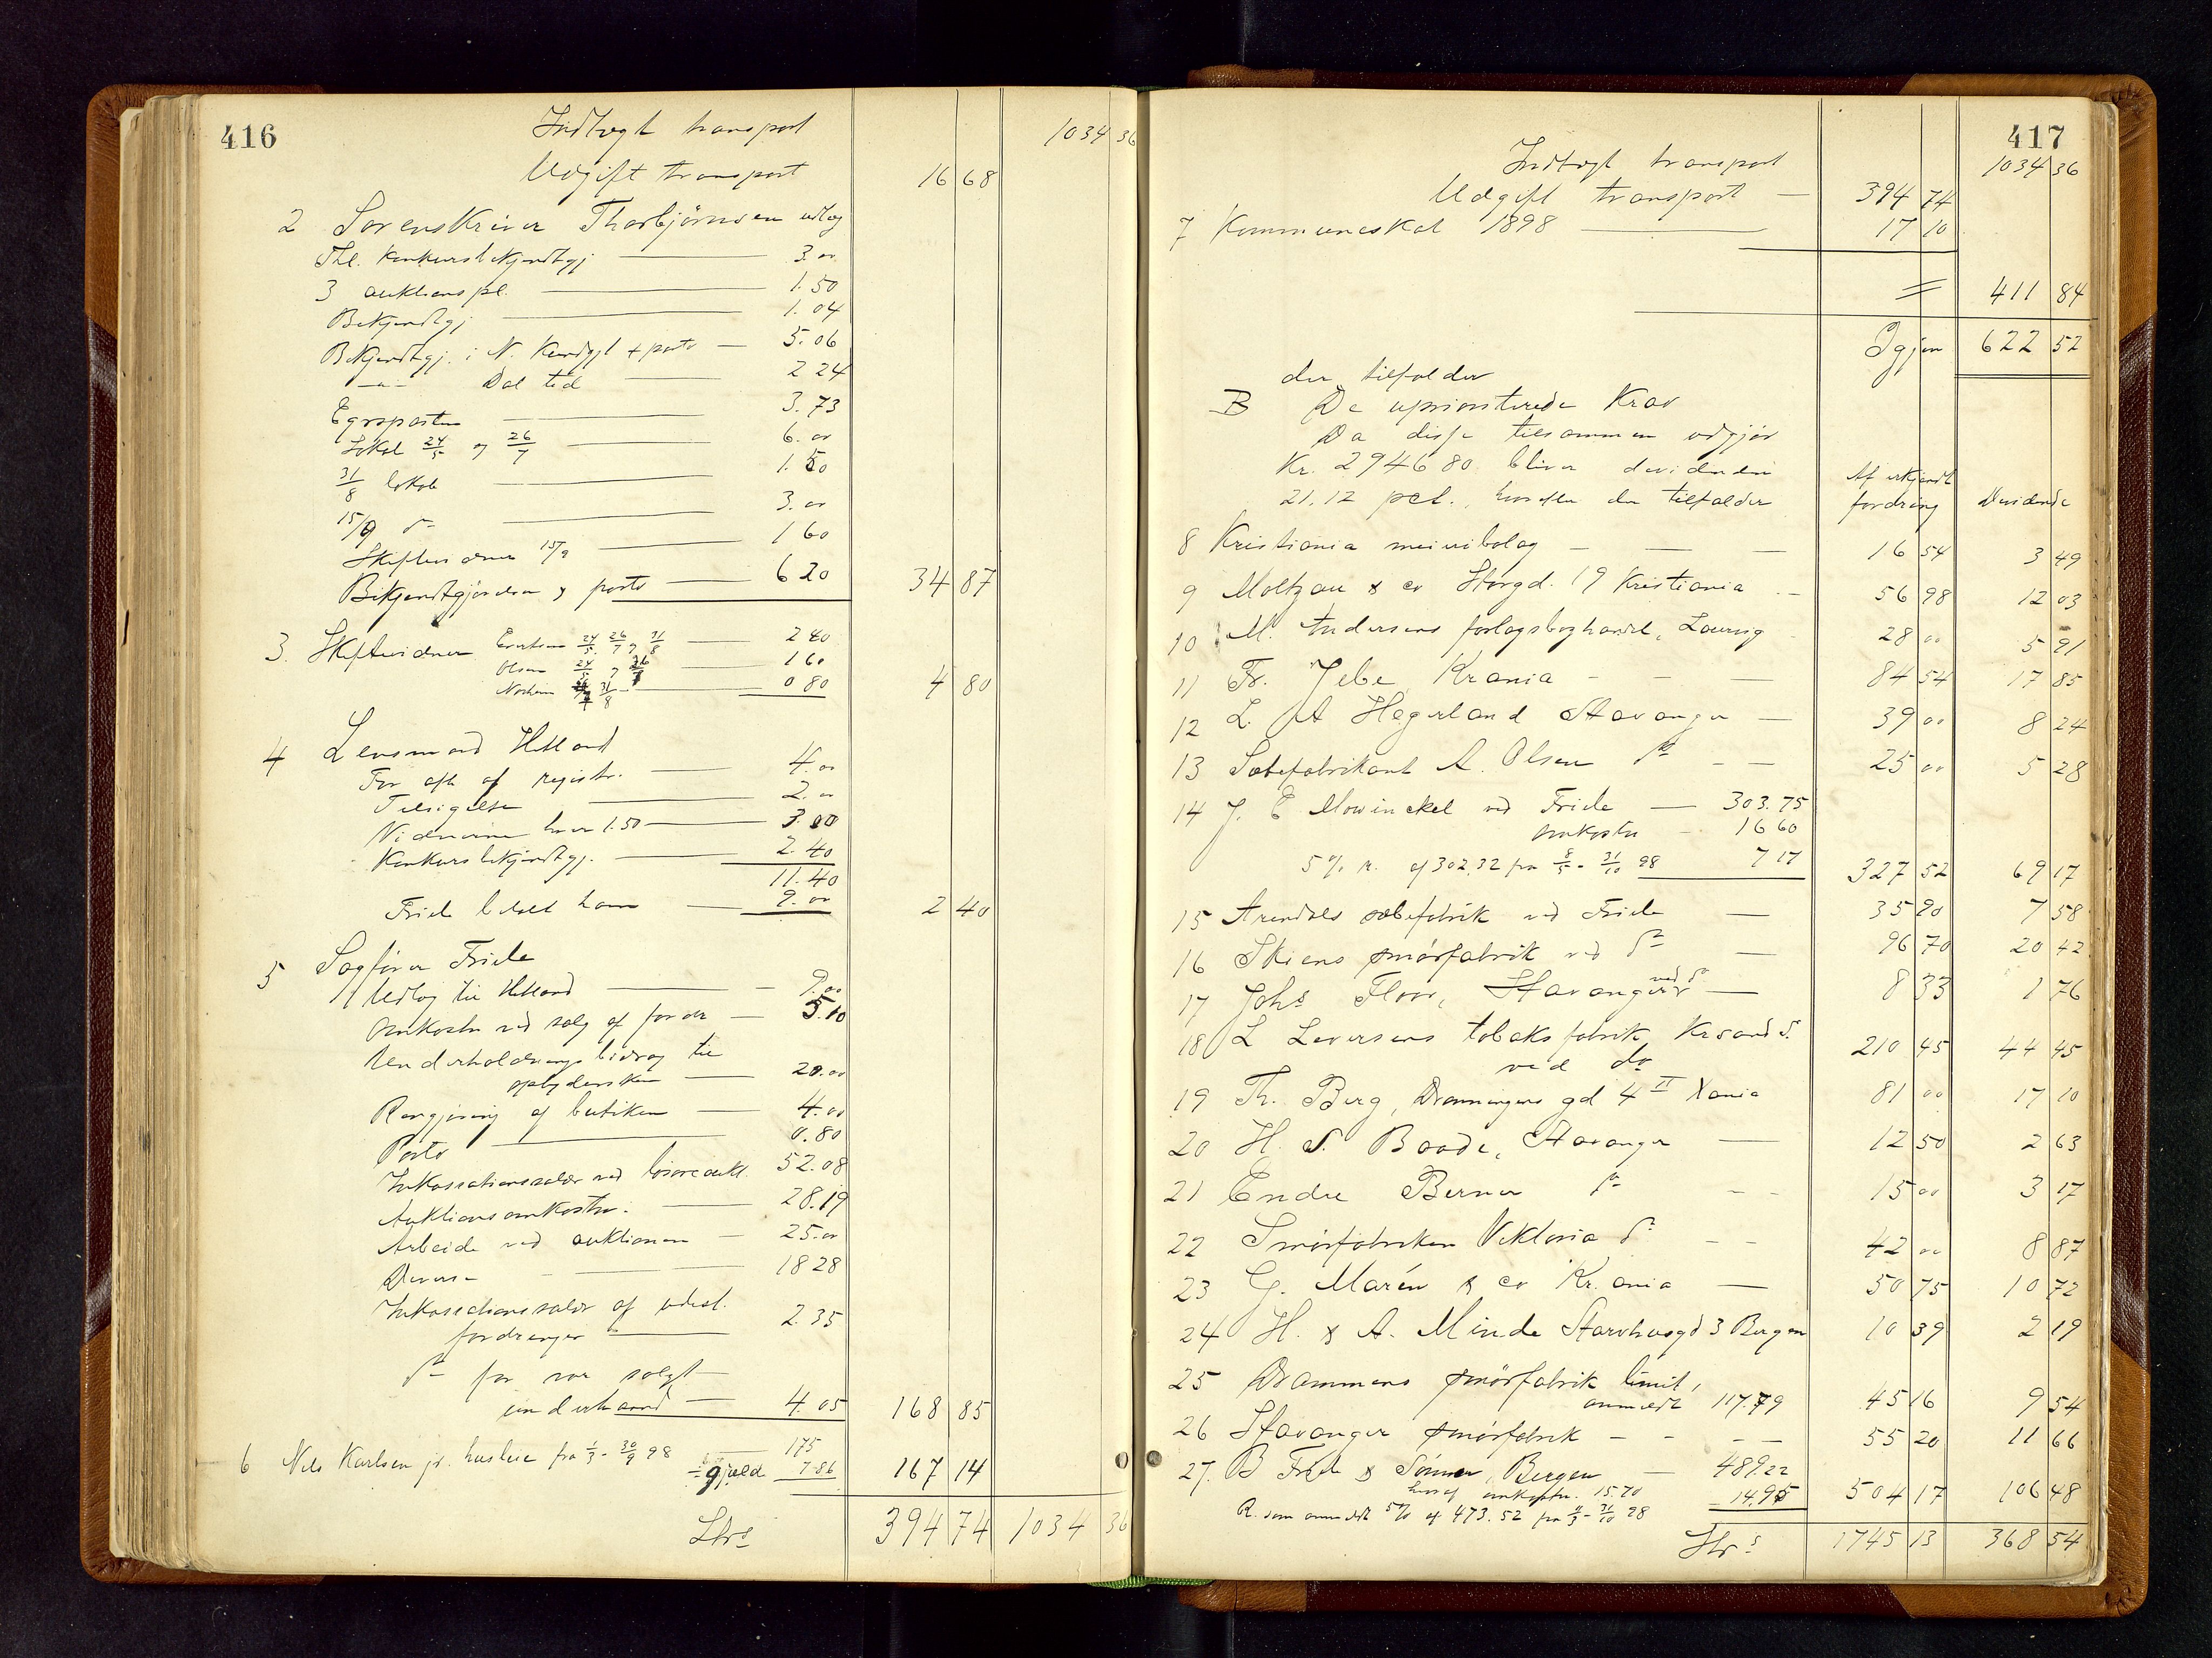 416
Indtægt transport 1034 36
Udgift transport 16 68
2 Sorenskriver Thorbjørnsen udlæg
Thl. Konkursbekjendtgj 3.00
3 auktionspl. 1.50
Bekjendtgj 1.04
Bekjendtgj. i N. Kundgj + porto 5.06
— " — Dal tid 2 24
Egrsposten 3.73
Lokal 24/5 og 26/7 6.00
31/8 lokale 1.50
15/9 do 3.00
Skiftevidner 15/9 1 60
Bekjendtgjørelser og porto 6 20 34 87
3. Skiftevidner Evertsen 24/5. 26/7 og 31/8 2 40
Olsen 24/5 og 26/7 1 60
Nordheim 31/8 0 80 4 80
4 Lensmand Helland
For afh af registr. 4.00
Tilsigelse 2.00
Vidnerne hver 1.50 3.00
Konkursbekjendtgj. 2.40
11.40
Friele betalt ham 9.00 2 40
5 Sagfører Friele
Udlæg til Helland 9.00
Omkostn ved salg af fordr 5.10
Underholdningsbidrag til
opbydersken 20.00
Rengjøring af butiken 4.00
Porto 0.80
Inkassationssalær ved løsøreaukt. 52.08
Auktionsomkostn. 28.19
Arbeide ved auktionen 25.00
Diverse 18 28
Inkassationssalær af udest.
fordringer 2.35
do for var solgt
underhaand 4.05 168 85
6 Nils Karlsen jr. husleie fra 1/3 - 30/9 98 175
÷ gjæld 7.86 167 14
Ltrs 394 74 1034 36
417
Indtægt transport 1034 36
Udgift transport 394 74
7 Kommuneskat 1898 17 10
= 411 84
Igjen 622 52
der tilfalder
B De uprioriterede Krav
Da disse tilsammen udgjør
Kr. 2946 80 bliver dividenden
21.12 pct., hvorefter der tilfalder
Af erkjendt
fordring Dividende
8 Kristiania meieribolag 16 54 3 49
9 Moltzau & co Storgd. 19 Kristiania 56 98 12 03
10 M. Andersens forlagsboghandel, Laurvig 28 00 5 91
11 Fr. Jebe Krania 84 54 17 85
12 L. A Hegerland Stavanger 39 00 8 24
13 Sæbefabrikant A. Olsen do 25 00 5 28
14 J. E Mowinckel ved Friele 303.75
omkostn 16 60
5 % r. af 302.32 fra 8/5 - 31/10 98 7 17 327 52 69 17
15 Arendals sæbefabrik ved Friele 35 90 7 58
16 Skiens smørfabrik ved do 96 70 20 42
17 Johs Floor, Stavanger ved do 8 33 1 76
18 L Leversens tobaksfabrik, Krsand S.
ved do 210 45 44 45
19 Th. Berg, Dronningens gd 4 II Xania 81 00 17 10
20 H. S. Baade, Stavanger 12 50 2 63
21 Endre Berner do 15 00 3 17
22 Smørfabriken Viktoria do 42 00 8 87
23 G. Marén & co Kr.ania 50 75 10 72
24 H. & A. Minde Starvhusgd 3 Bergen 10 39 2 19
25 Drammens smørfabrik limit,
anmeldt 117.79 45 16 9 54
26 Stavanger smørfabrik 55 20 11 66
27. B Friele & Sønner, Bergen 489.22
hvoraf omkostn. 15.70
R. som anmeldt 5% af 473.52 fra 11/3 - 31/10 98 14.95 504 17 106 48
Ltrs 1745 13 368 54